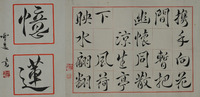 攜手向花
間暫把
幽懷同散
涼生亭
下風荷
映水翩翻
憶蓮